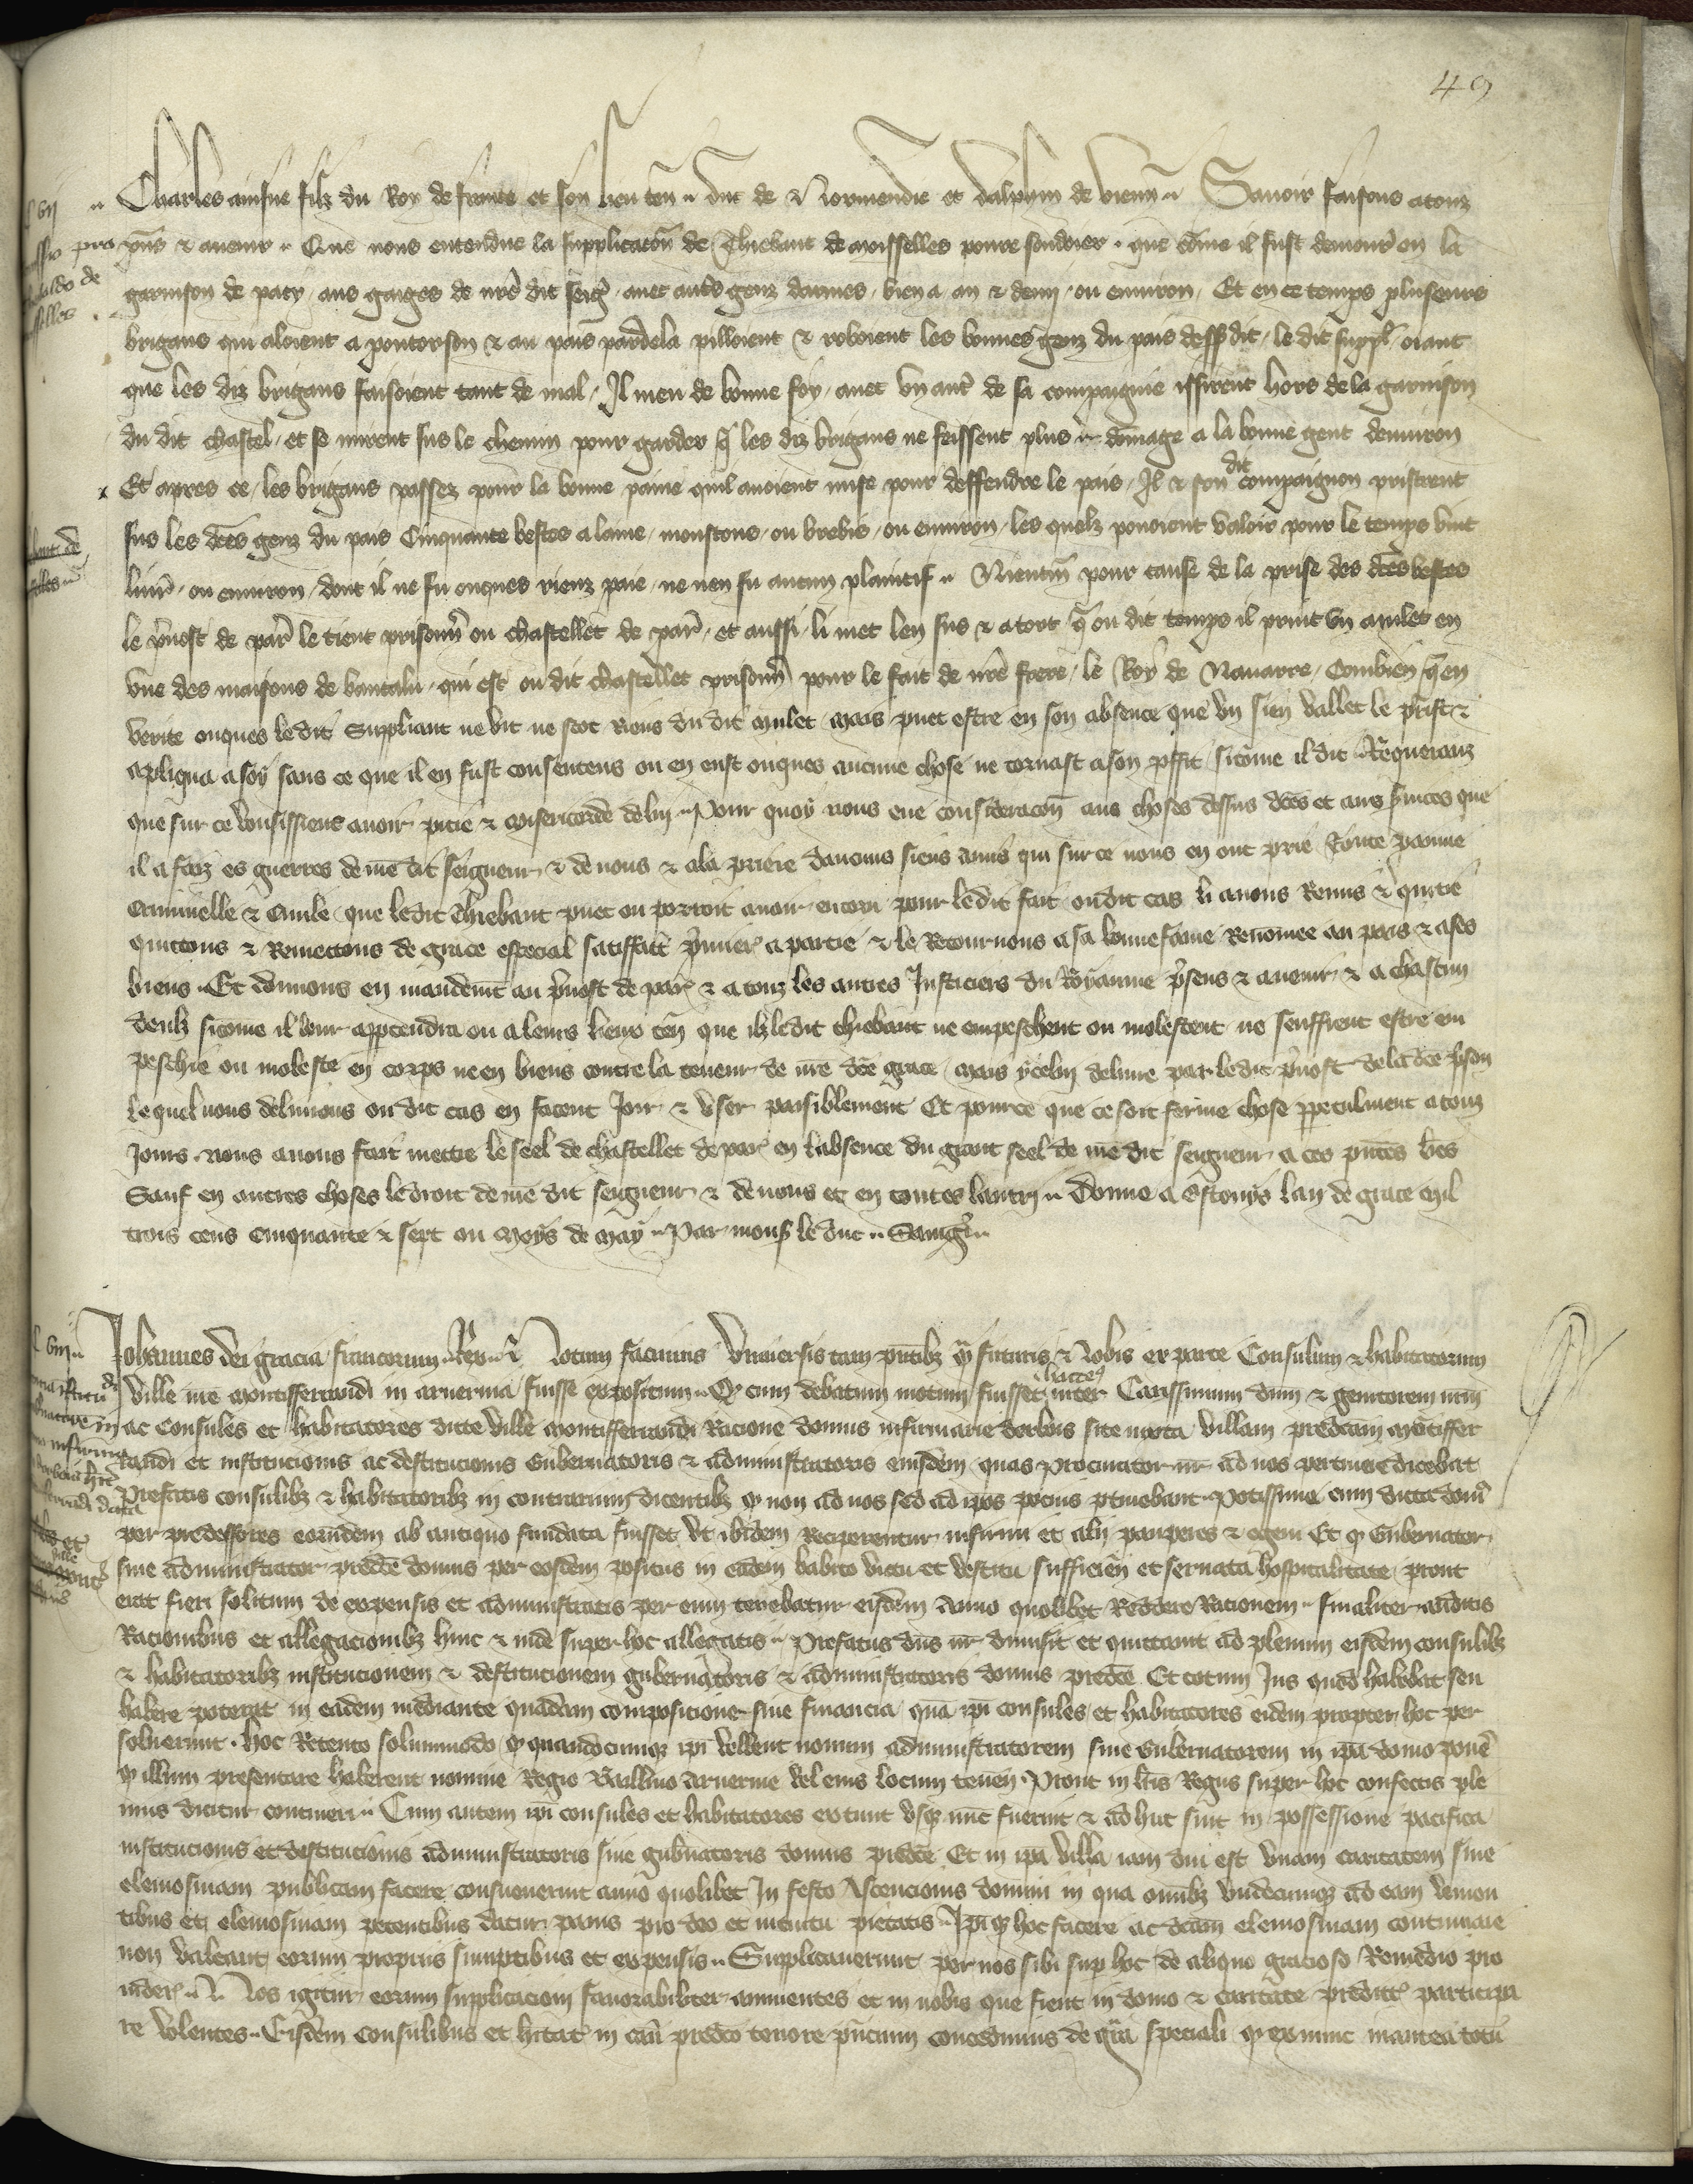 49
Charles ainsne filz du Roy de france et son lieu ten̄ duc de Normendie et dalphin de vienn̄ Savoir faisons a touz
pn̄s & avenir Que nous entendue la supplicacōn de Thiebaut de moisselles povre soudoier que cōme il fust demoure en la
garnison de pacy aus gaiges de nrē dit seigr avec autrs genz darmes bien a an & demi ou environ Et en ce temps plusieurs
brigans qui aloient a pontorson & au pais par dela pilloient & roboient les bonnes genz du pais dessusdit le dit suppl oiant
que les diz brigans faisoient tant de mal Il meu de bonne foy avec un autr de sa compaignie issirent hors de la garnison
du dit chastel et se mirent sus le chemin pour garder q̄ les diz brigans ne feissent plus dōmage a la bonne gent denviron
Et apres ce les brigans passez pour la bonne paine quil avoient mise pour deffendre le pais Il & son dit compaignon pristrent
sus les dc̄es genz du pais Cinquante bestes a laine moustons ou brebis ou environ les quelz povoient valoir pour le temps vint
livr̄ ou environ dont il ne fu onques rienz paie ne nen fu aucun plaintif Nientm̄ pour cause de la prise des dc̄es bestes
le p̄vost de par̄ le tient prisonn̄ ou chastellet de par̄ et aussi li met len sus & a tort q̄ ou dit temps il print un mulet en
une des maisons de bantalu qui est ou dit chastellet prisonn̄ pour le fait de nrē frere le Roy de Navarre Combien q̄ en
verite onques ledit Suppliant ne vit ne scot riens du dit mulet mais puet estre en son absence que un sien vallet le prist &
apliqua a soy sans ce que il en fust consentens ou en eust onques aucune chose ne tornast a son pffit sicōme il dit Requeranz
que sur ce vousissiens avoir pitie & misericorde de luy Pour quoy nous eue consideracōn aus choses dessus dc̄es et aus s̄vices que
il a faiz es guerres de mō dit seigneur & de nous & a la priere daucuns siens amis qui sur ce nous en ont prie Toute paine
criminelle & civile que ledit Thiebaut puet ou porroit avoir encoru pour le dit fait ou dit cas li avons Remis & quitie
quittons & Remettons de grace especial satiffacc̄ p̄mier a partie & le Retournons a sa bonne fame Renōmee au pais & a ses
biens Et donnons en mandemt au p̄vost de par & a touz les autres Justiciers du Royaume p̄sens & avenir & a chascun
deulz sicōme il leur appartendra ou a leurs lieux ten̄ que ilz ledit thiebaut ne empeschent ou molestent ne seuffrent estre em
peschie ou moleste en corps ne en biens contre la teneur de nrē dc̄e grace mais ycelui delivre par ledit p̄vost de la dc̄e p̄son
Lequel nous delivrons ou dit cas en facent Joir & user paisiblement Et pource que ce soit ferme chose ppetuelment a touz
Jours nous avons fait mettre le seel de chastellet de par en labsence du grant seel de mō dit seigneur a ces pn̄tes lr̄es
Sauf en autres choses le droit de mō dit seigneur & de nous et en toutes lautrui Donne a lan de grace mil
trois cens cinquante & sept ou moys de may Par mons le duc
Johannes dei gracia francorum Rex Notum facimus Universis tam pn̄tibz q̄ futuris Nobis ex parte Consulum & habitatorum
ville nrē montifferrandi in arvernia fuisse expositum Q cum debatum motum fuisset inter Carissimum dnm & genitorem nrm
ac consules et habitatores dicte ville montifferrandi Racione domus infirmarie site iuxta villam predcam montiffer
randi et institucionis ac destitucionis Gubernatoris & administratoris eiusdem quas Procurator nr ad nos pertinere dicebat
Prefatis consulibz & habitatoribz in contrarium dicentibz q non ad nos sed ad ipos pocius ptinebant Potissime cum dicta dom
per predecessores eorumdem ab antiquo fundata fuisset ut ibidem Reciperentur infirmi et alij pauperes & egeni Et q Gubernator
sive administrator predc̄e domus per eosdem positus in eadem habito victu et vestitu sufficien et servata hospitalitate prout
erat fieri solitum de expensis et administratis per eum tenebatur eisdem anno quolibet Reddere Racionem finaliter auditis
Racionibus et allegacionibz hinc & inde super hoc allegatis Prefatus dn̄s nr dimisit et quittavit ad plenum eisdem consulibz
& habitatoribz institucionem & destitucionem gubernatoris & administratoris domus predc̄e Et totum Jus quod habebat seu
habere poterat in eadem mediante quadam compositione sive financia quā ipi consules et habitatores eidem propter hoc per
solverunt hoc Retento solummodo q quandocumqz ipi vellent novum administratorem sive Gubernatorem in ipā domo ponē
q illum presentare haberent nomine Regio Baillivo arvernie vel eius locum tenen̄ Prout in lr̄is Regiis super hoc confectis ple
nius dicitur contineri Cum autem ipi consules et habitatores extunc usqz nūc fuerint & ad huc sint in possessione pacifica
institucionis et destitucionis administratoris sive gub̄natoris domus predc̄e Et in ipā villa iam diu est unam caritatem sive
elemosinam publicam facere consueverint anno quolibet In festo Ascencionis domini in qua omībz undecumqz ad eam venien
tibus et elemosinam petentibus datur panis pro deo et intuitu pietatis Ipiqz hoc facere ac dcām elemosinam continuare
non valeant eorum propriis sumptibus et expensis Supplicaverunt per nos sibi sup hoc de aliquo gracioso Remedio pro
videri Nos igitur eorum supplicacioni favorabiliter annuentes et in nobis que fient in domo & caritate predict participa
re volentes Eisdem consulibus et hītat in casū predc̄o tenore pn̄cium concedimus de grā speciali q ex nunc inantea totū